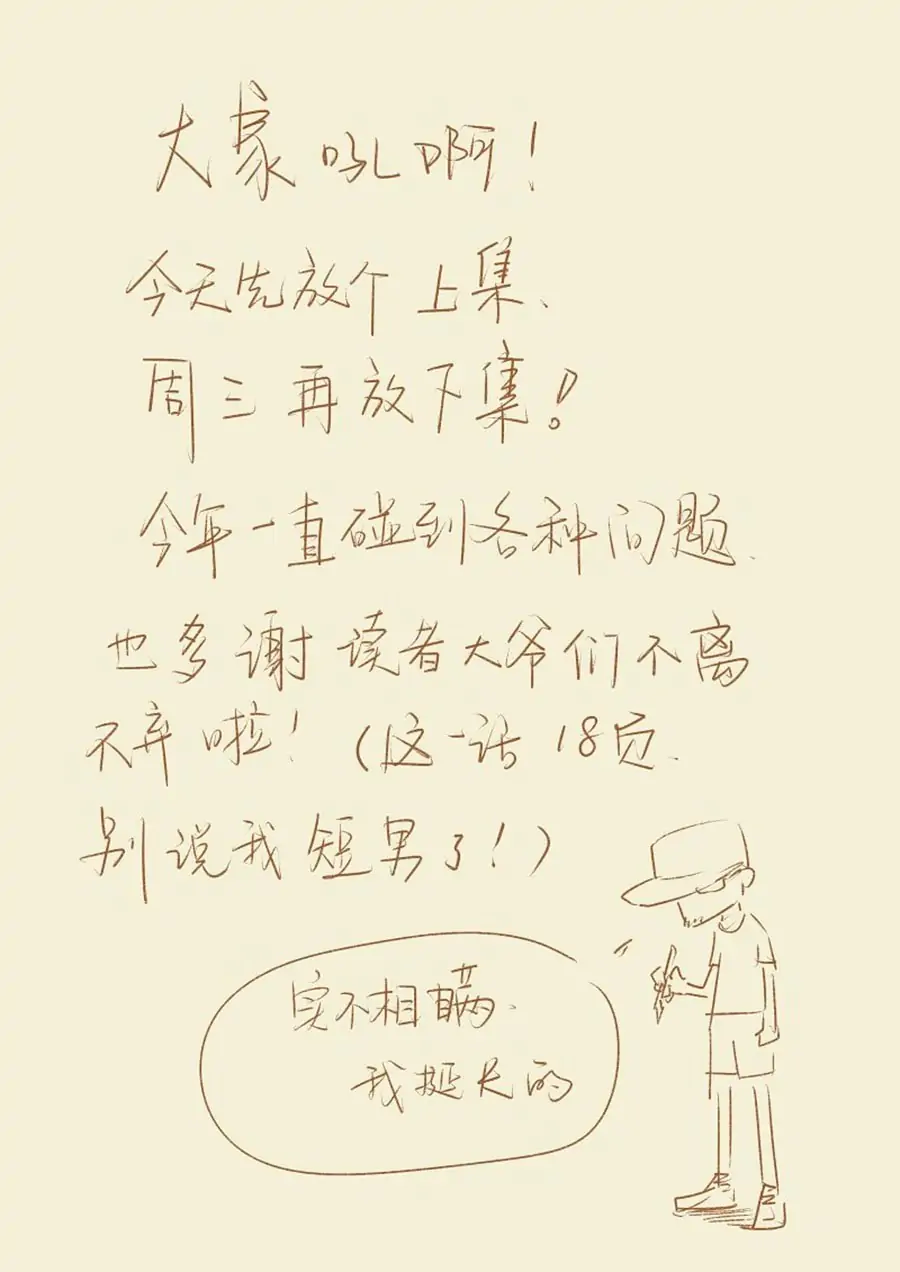 大家吼啊！
今天先放个上集、
周三再放下集！
今年一直碰到各种问题、
也多谢读者大爷们不离
不弃啦！（这一话18页、
别说我短男了！）
实不相瞒、
我挺长的